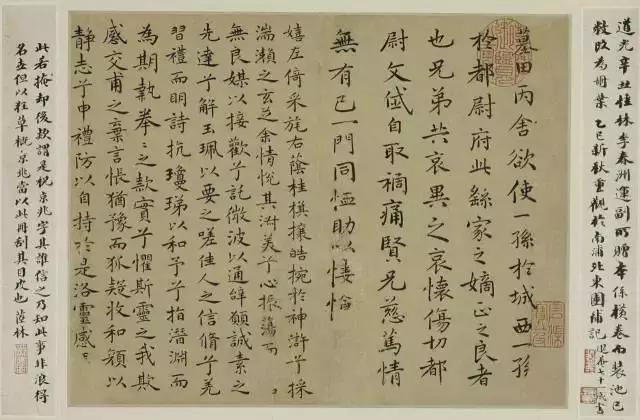 道光辛丑桂林李春洲運副所贈本係橫卷而裝池已
敝改為冊葉乙巳新秋重觀於南浦北東園補記
墓田丙舍欲使一孫於城西一孫
於都尉府此繇家之嫡正之良者
也兄弟共哀異之哀懷傷切都
尉文岱自取禍痛賢兄慈篤情
無有已一門同恤助以悽愴
嬉左倚采旄右蔭桂旗攘皓捥於神滸兮採
湍瀨之玄芝余情悅其淑美兮心振蕩而
無良媒以接歡兮託微波以通辭願誠素之
先達兮解玉珮以要之嗟佳人之信脩兮羌
習禮而明詩抗瓊珶以和予兮指潛淵而
為期執拳〻之款實兮懼斯靈之我欺
感交甫之棄言悵猶豫而狐疑收和顏以
静志兮申禮防以自持於是洛靈感
此若掩却後款謂是祝京兆字其誰信之乃知此事非浪得
名但以狂草概京兆當以此冊刮其目也茝林